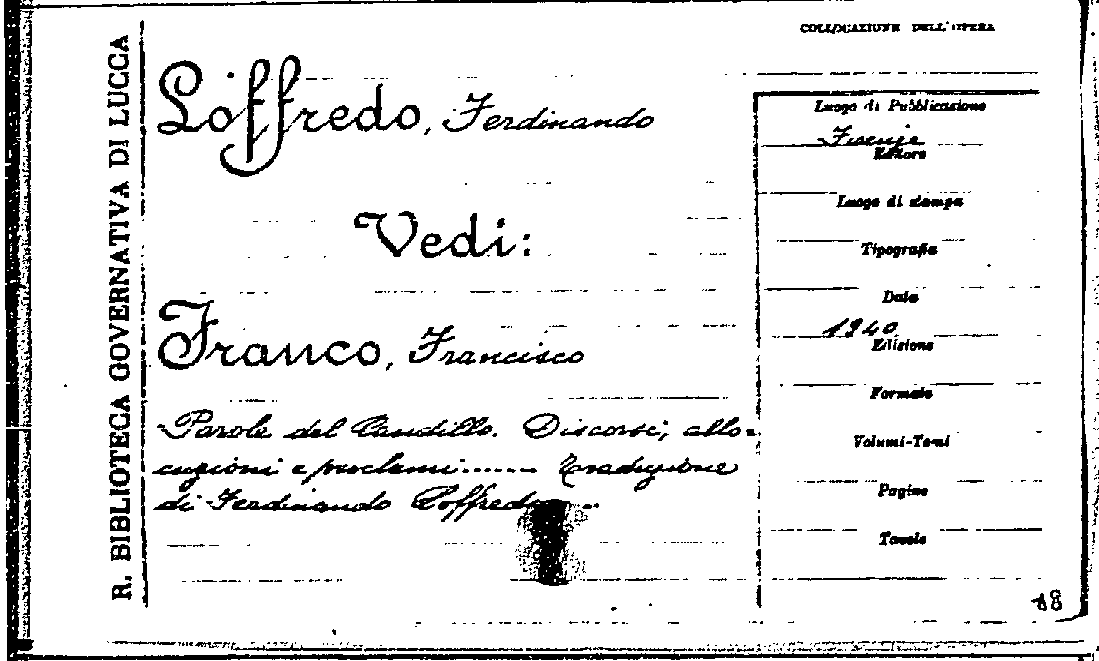 R. BIBLIOTECA GOVERNATIVA DI LUCCA
COLLOCAZIONE DELL'OPERA
Loffredo, Ferdinando
Vedi:
Franco, Francisco
Parole del Caudillo. Discorsi, allo-
cuzioni e proclami...... Traduzione
di Ferdinando Loffredo...
Luogo di Pubblicazione
Firenze
Editore
Luogo di stampa
Tipografia
Data
1940
Edizione
Formato
Volumi-Tomi
Pagine
Tavole